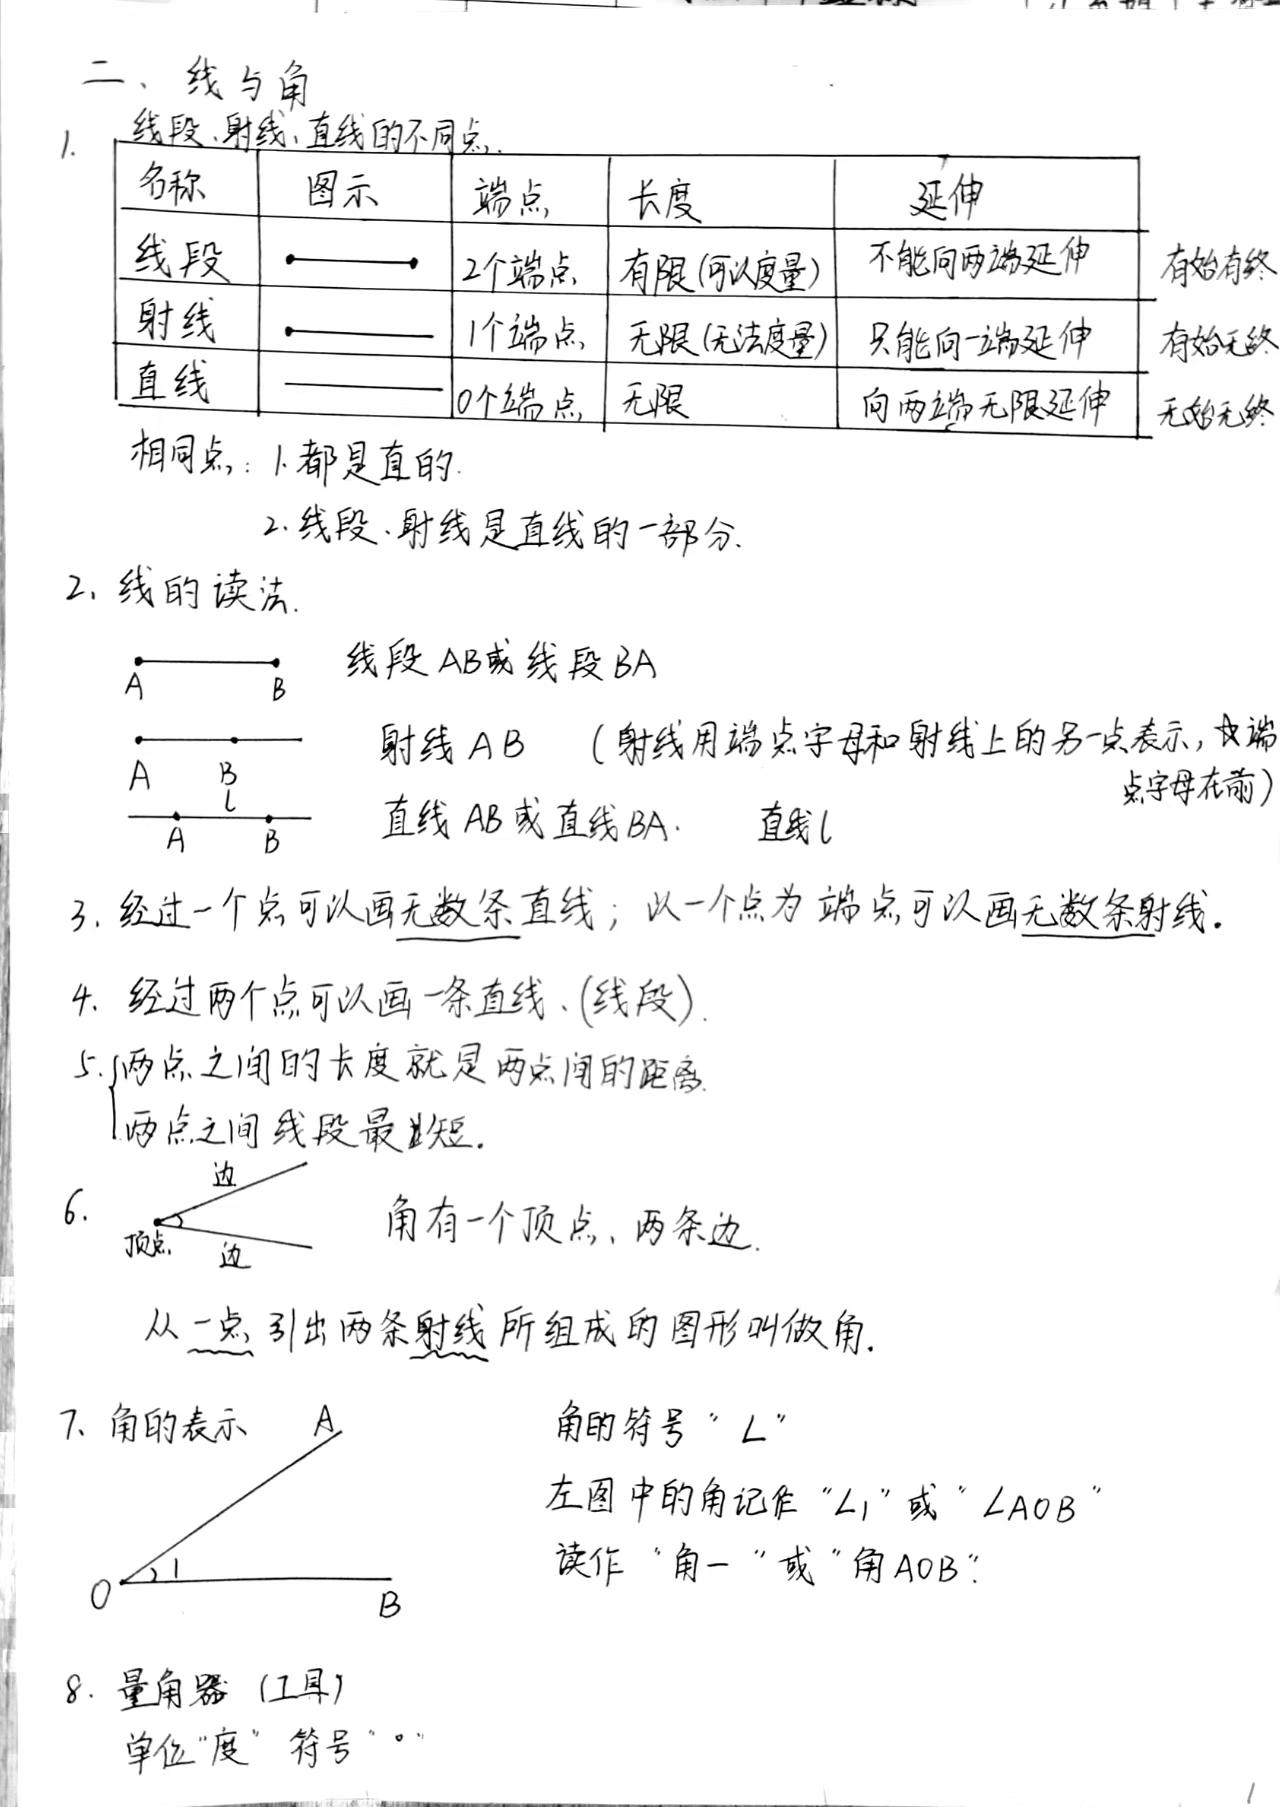 二、线与角
1. 线段、射线、直线的不同点.
名称 图示 端点 长度 延伸
线段 2个端点 有限(可以度量) 不能向两端延伸 有始有终
射线 1个端点 无限(无法度量) 只能向一端延伸 有始无终
直线 0个端点 无限 向两端无限延伸 无始无终
相同点: 1.都是直的.
2.线段、射线是直线的一部分.
2、线的读法.
A B 线段AB或线段BA
A B 射线AB (射线用端点字母和射线上的另一点表示,端
点字母在前)
l
A B 直线AB或直线BA. 直线l
3、经过一个点可以画无数条直线;以一个点为端点可以画无数条射线.
4、经过两个点可以画一条直线、(线段).
5. 两点之间的长度就是两点间的距离.
两点之间线段最短.
边
6. 顶点 角有一个顶点、两条边.
边
从一点引出两条射线所组成的图形叫做角.
7、角的表示 A 角的符号"∠"
左图中的角记作"∠1"或"∠AOB"
读作"角一"或"角AOB".
O 1 B
8. 量角器 (工具)
单位"度" 符号"°"
1